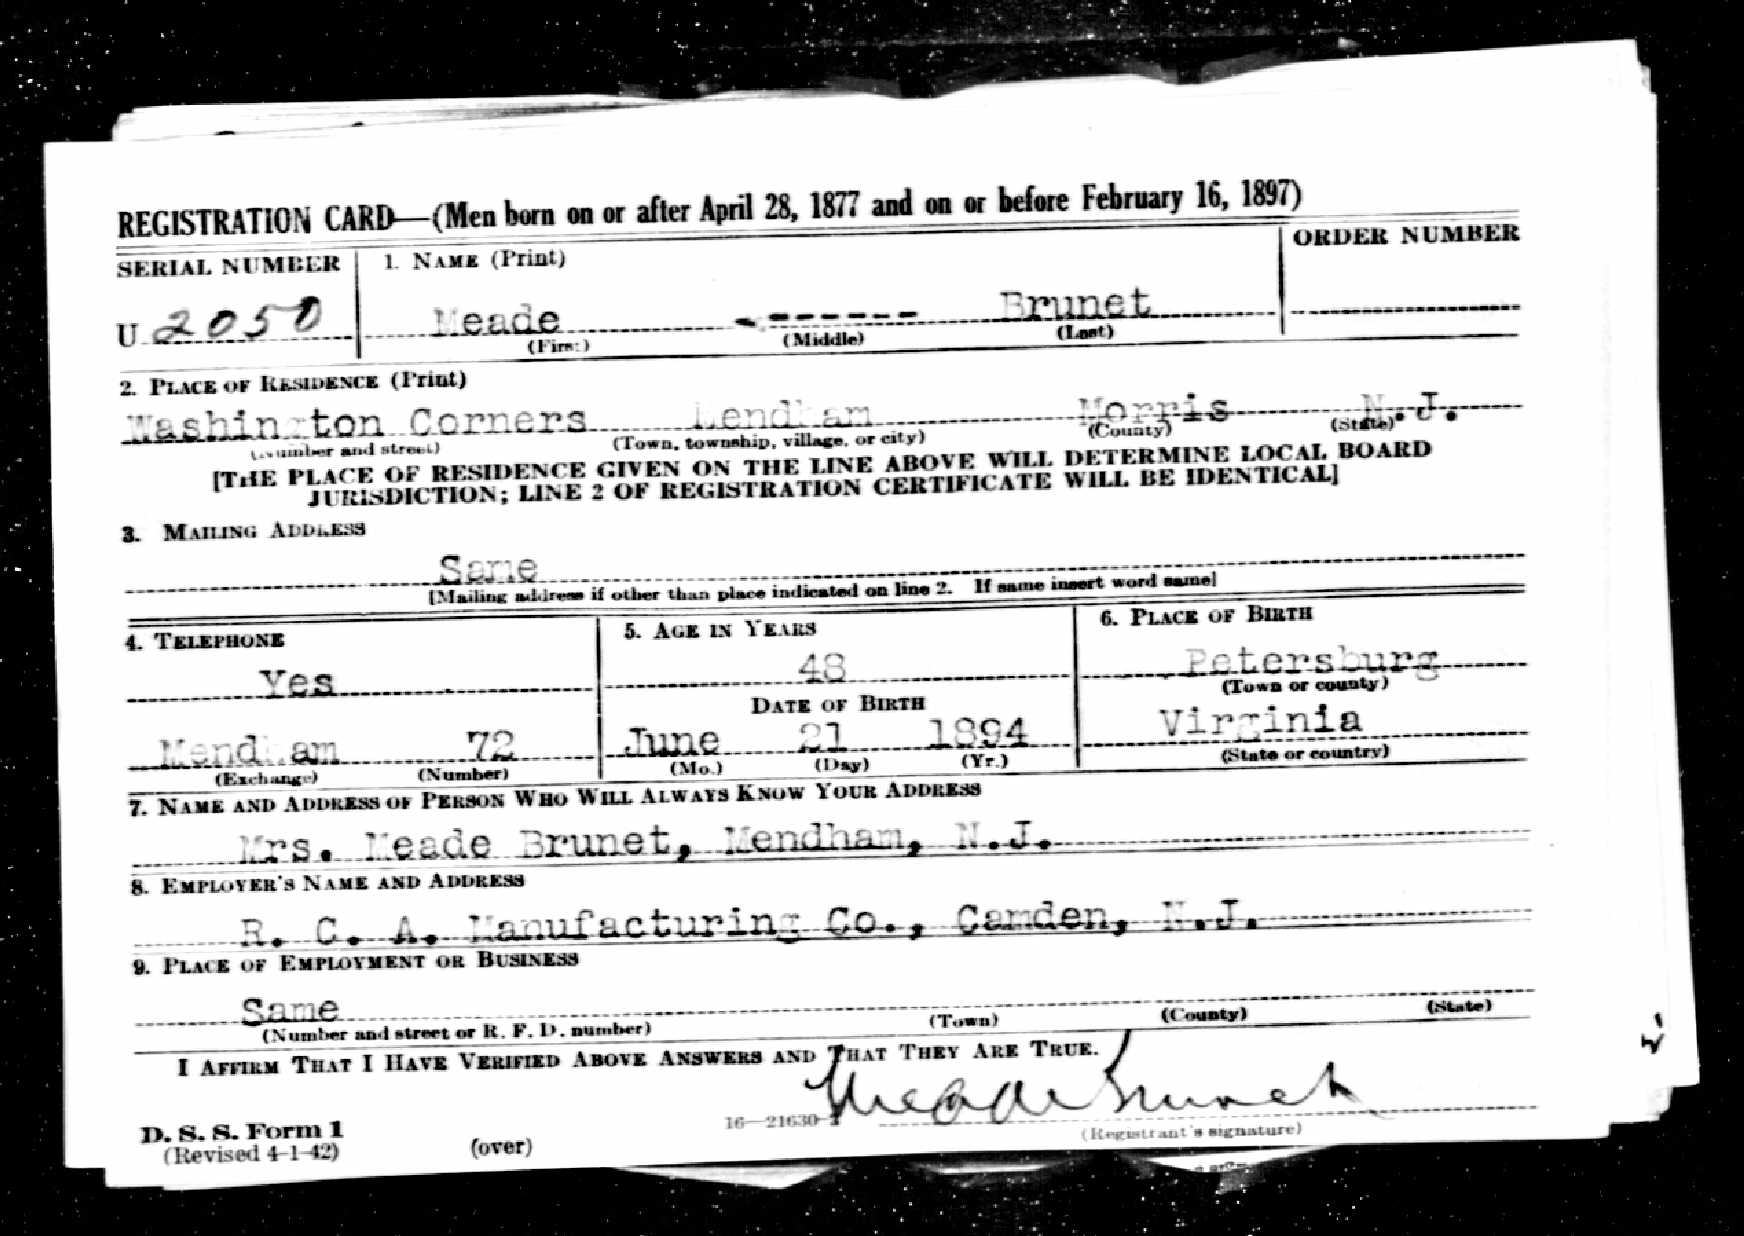 REGISTRATION CARD—(Men born on or after April 28, 1877 and on or before February 16, 1897)
SERIAL NUMBER 1. NAME (Print) ORDER NUMBER
U 2050 Meade ------ Brunet
(First) (Middle) (Last)
2. PLACE OF RESIDENCE (Print)
Washington Corners Mendham Morris N.J.
(Number and street) (Town, township, village, or city) (County) (State)
[THE PLACE OF RESIDENCE GIVEN ON THE LINE ABOVE WILL DETERMINE LOCAL BOARD
JURISDICTION; LINE 2 OF REGISTRATION CERTIFICATE WILL BE IDENTICAL]
3. MAILING ADDRESS
Same
[Mailing address if other than place indicated on line 2. If same insert word same]
4. TELEPHONE 5. AGE IN YEARS 6. PLACE OF BIRTH
Yes 48 Petersburg
(Town or county)
DATE OF BIRTH
Mendham 72 June 21 1894 Virginia
(Exchange) (Number) (Mo.) (Day) (Yr.) (State or country)
7. NAME AND ADDRESS OF PERSON WHO WILL ALWAYS KNOW YOUR ADDRESS
Mrs. Meade Brunet, Mendham, N.J.
8. EMPLOYER'S NAME AND ADDRESS
R. C. A. Manufacturing Co., Camden, N.J.
9. PLACE OF EMPLOYMENT OR BUSINESS
Same
(Number and street or R. F. D. number) (Town) (County) (State)
I AFFIRM THAT I HAVE VERIFIED ABOVE ANSWERS AND THAT THEY ARE TRUE.
Meade Brunet
D. S. S. Form 1 16—21630-1 (Registrant's signature)
(Revised 4-1-42) (over)